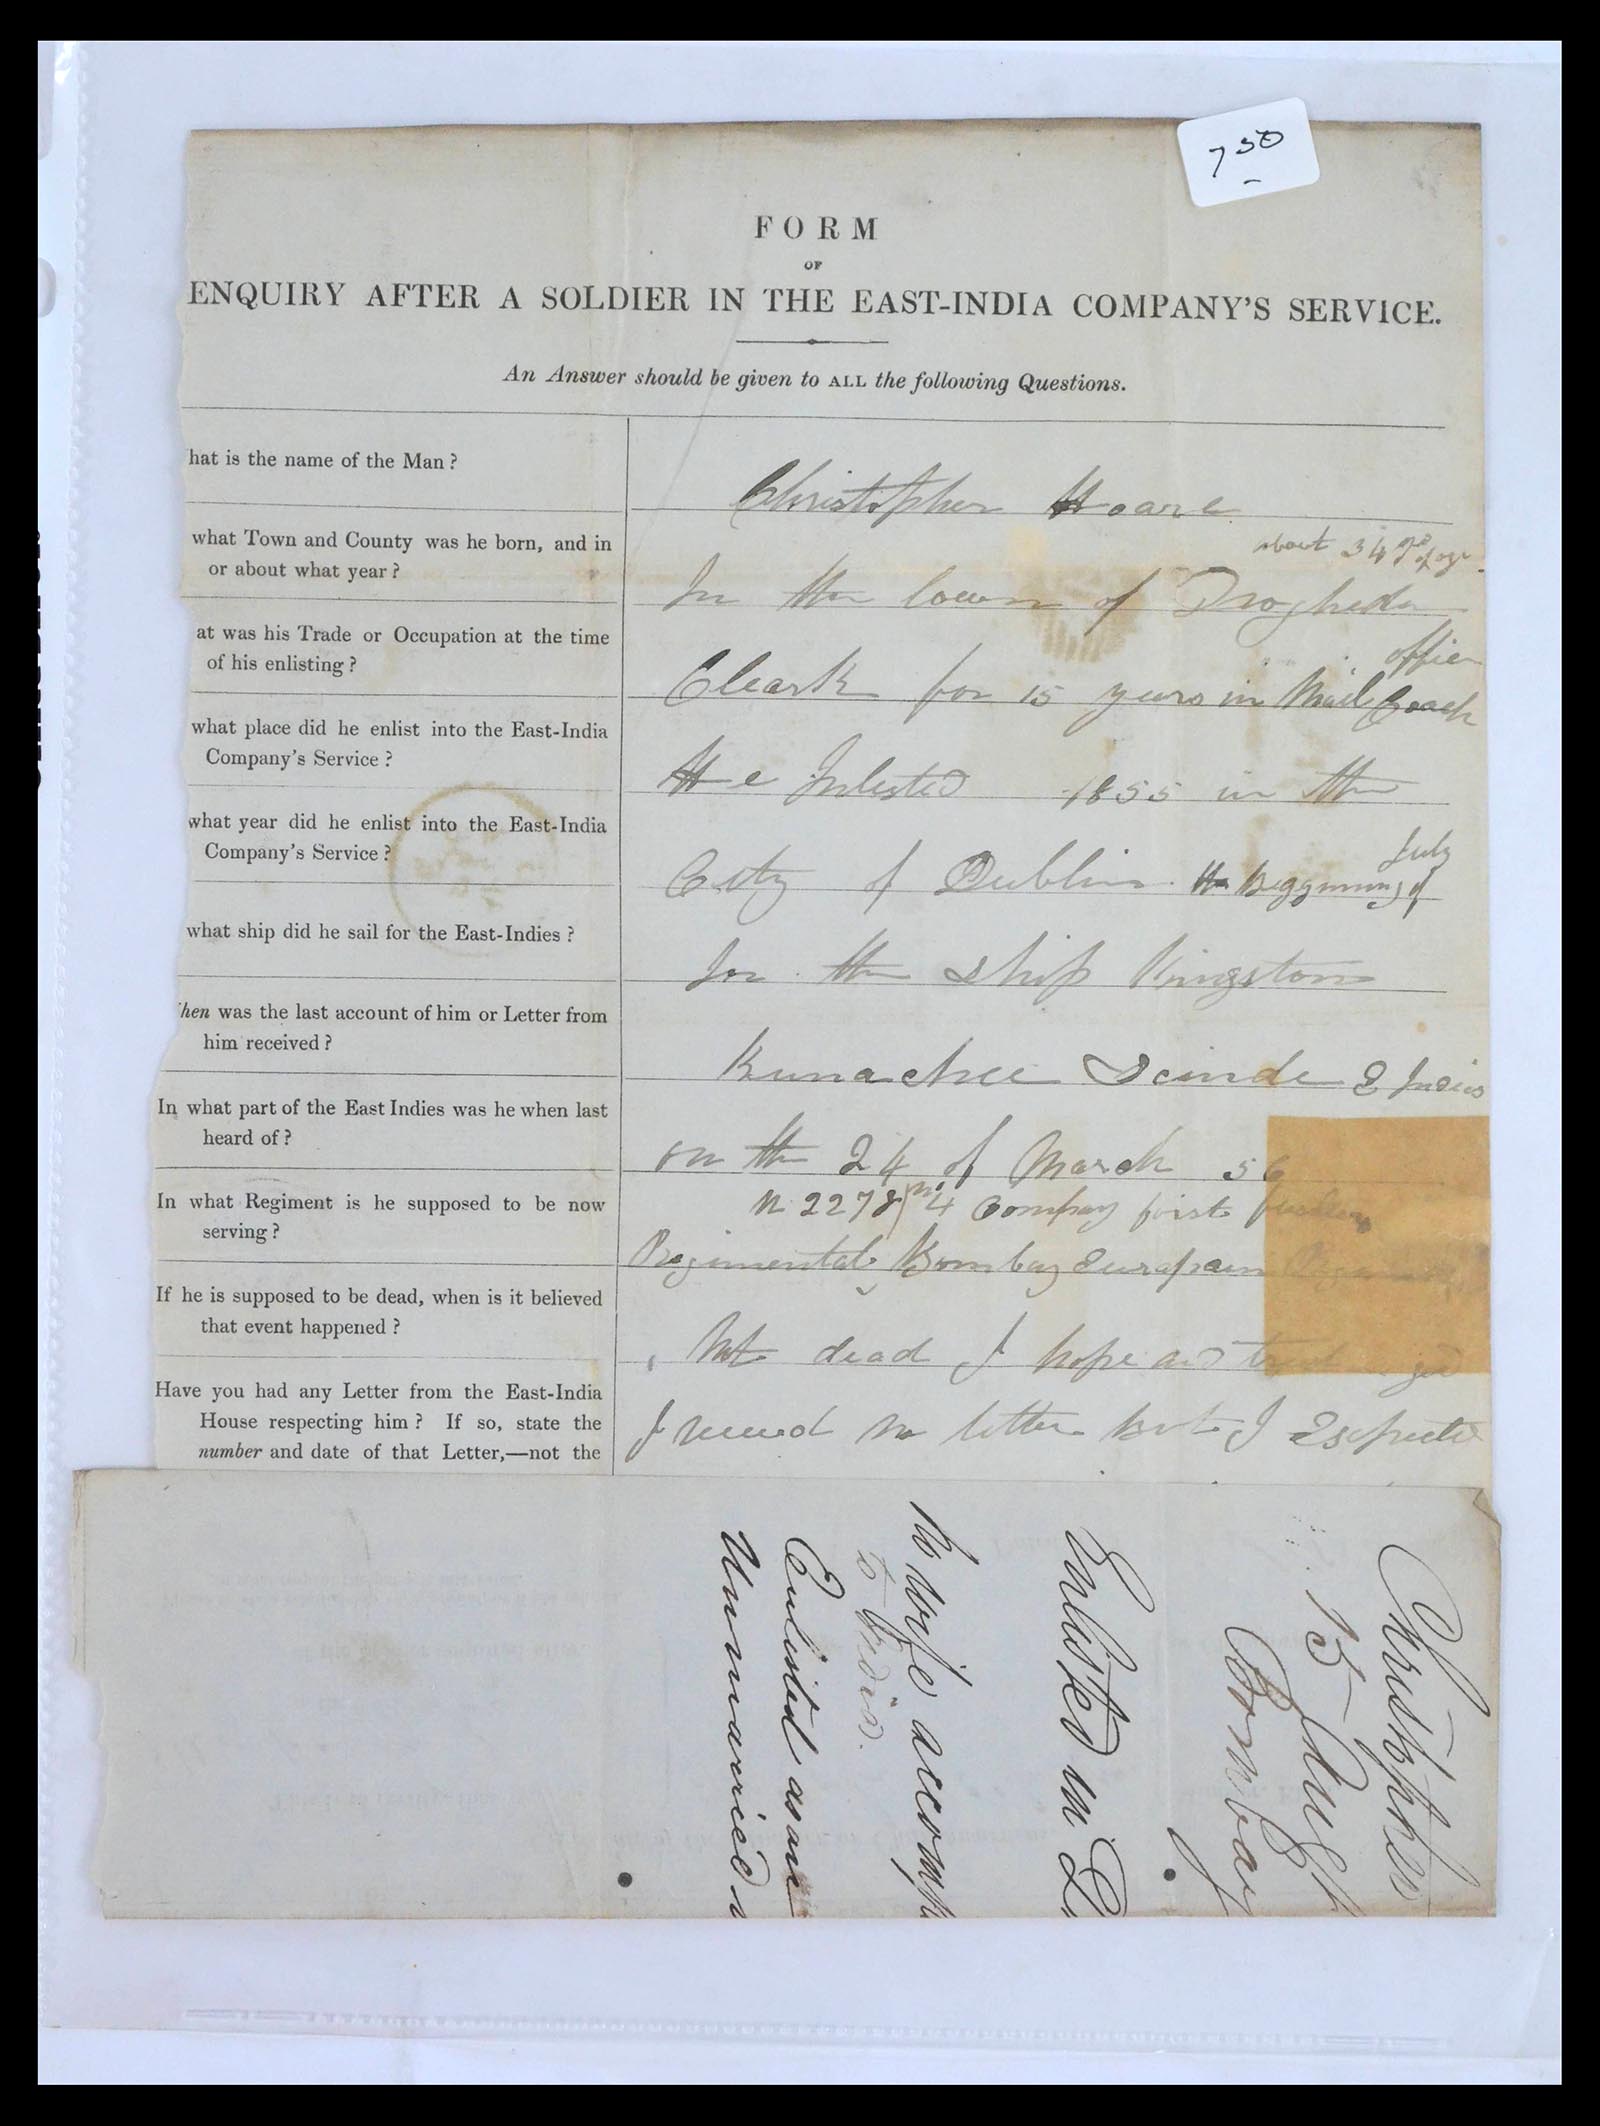 7 50
FORM
OF
ENQUIRY AFTER A SOLDIER IN THE EAST-INDIA COMPANY'S SERVICE.
An Answer should be given to ALL the following Questions.
hat is the name of the Man?
Christopher Hoare
what Town and County was he born, and in
or about what year?
about 34 yrs of age
In the town of Drogheda
at was his Trade or Occupation at the time
of his enlisting?
office
Cleark for 15 years in Mail Coach
what place did he enlist into the East-India
Company's Service?
He Inlested 1855 in the
what year did he enlist into the East-India
Company's Service?
July
City of Dublin Beggining of
what ship did he sail for the East-Indies?
In the Ship Kingston
hen was the last account of him or Letter from
him received?
Kurrachee Scinde E Indies
In what part of the East Indies was he when last
heard of?
on the 24 of March 56
In what Regiment is he supposed to be now
serving?
N 2278 4 Company first
Regimental Bombay European
If he is supposed to be dead, when is it believed
that event happened?
Not dead I hope and trust god
Have you had any Letter from the East-India
House respecting him? If so, state the
number and date of that Letter,—not the
I receved no letter But I Expected
Christopher
15
Bombay
Enlisted in
No wife accomp
to India.
Enlisted as an
Unmarried